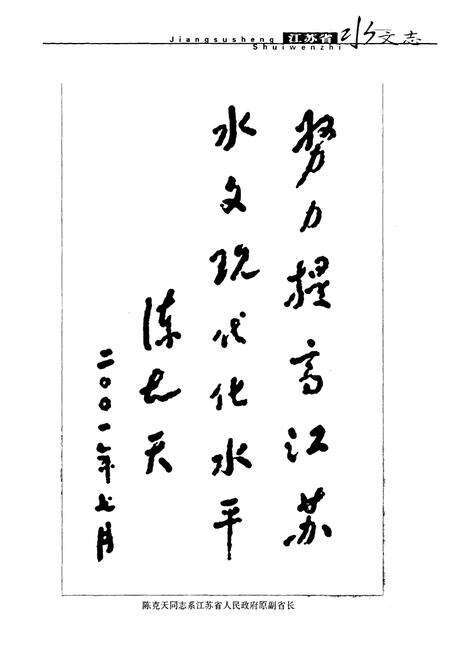 Jiangsusheng 江苏省 水文志
Shuiwenzhi
努力提高江苏
水文现代化水平
陈克天
二〇〇一年七月
陈克天同志系江苏省人民政府原副省长